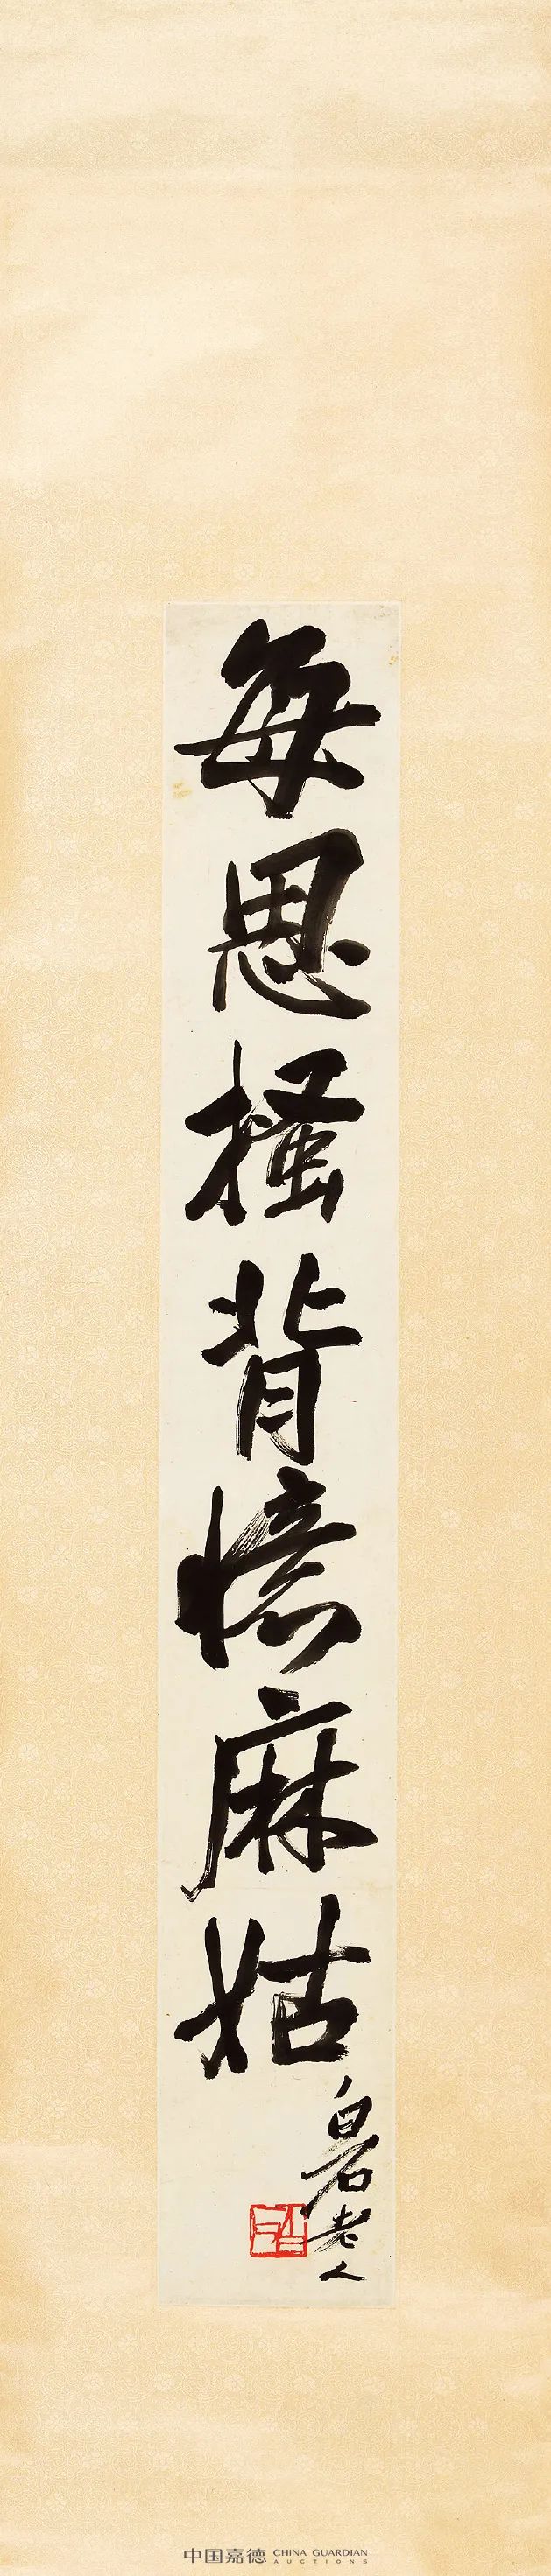 每思搔背憶麻姑
白石老人
中国嘉德 CHINA GUARDIAN
AUCTIONS